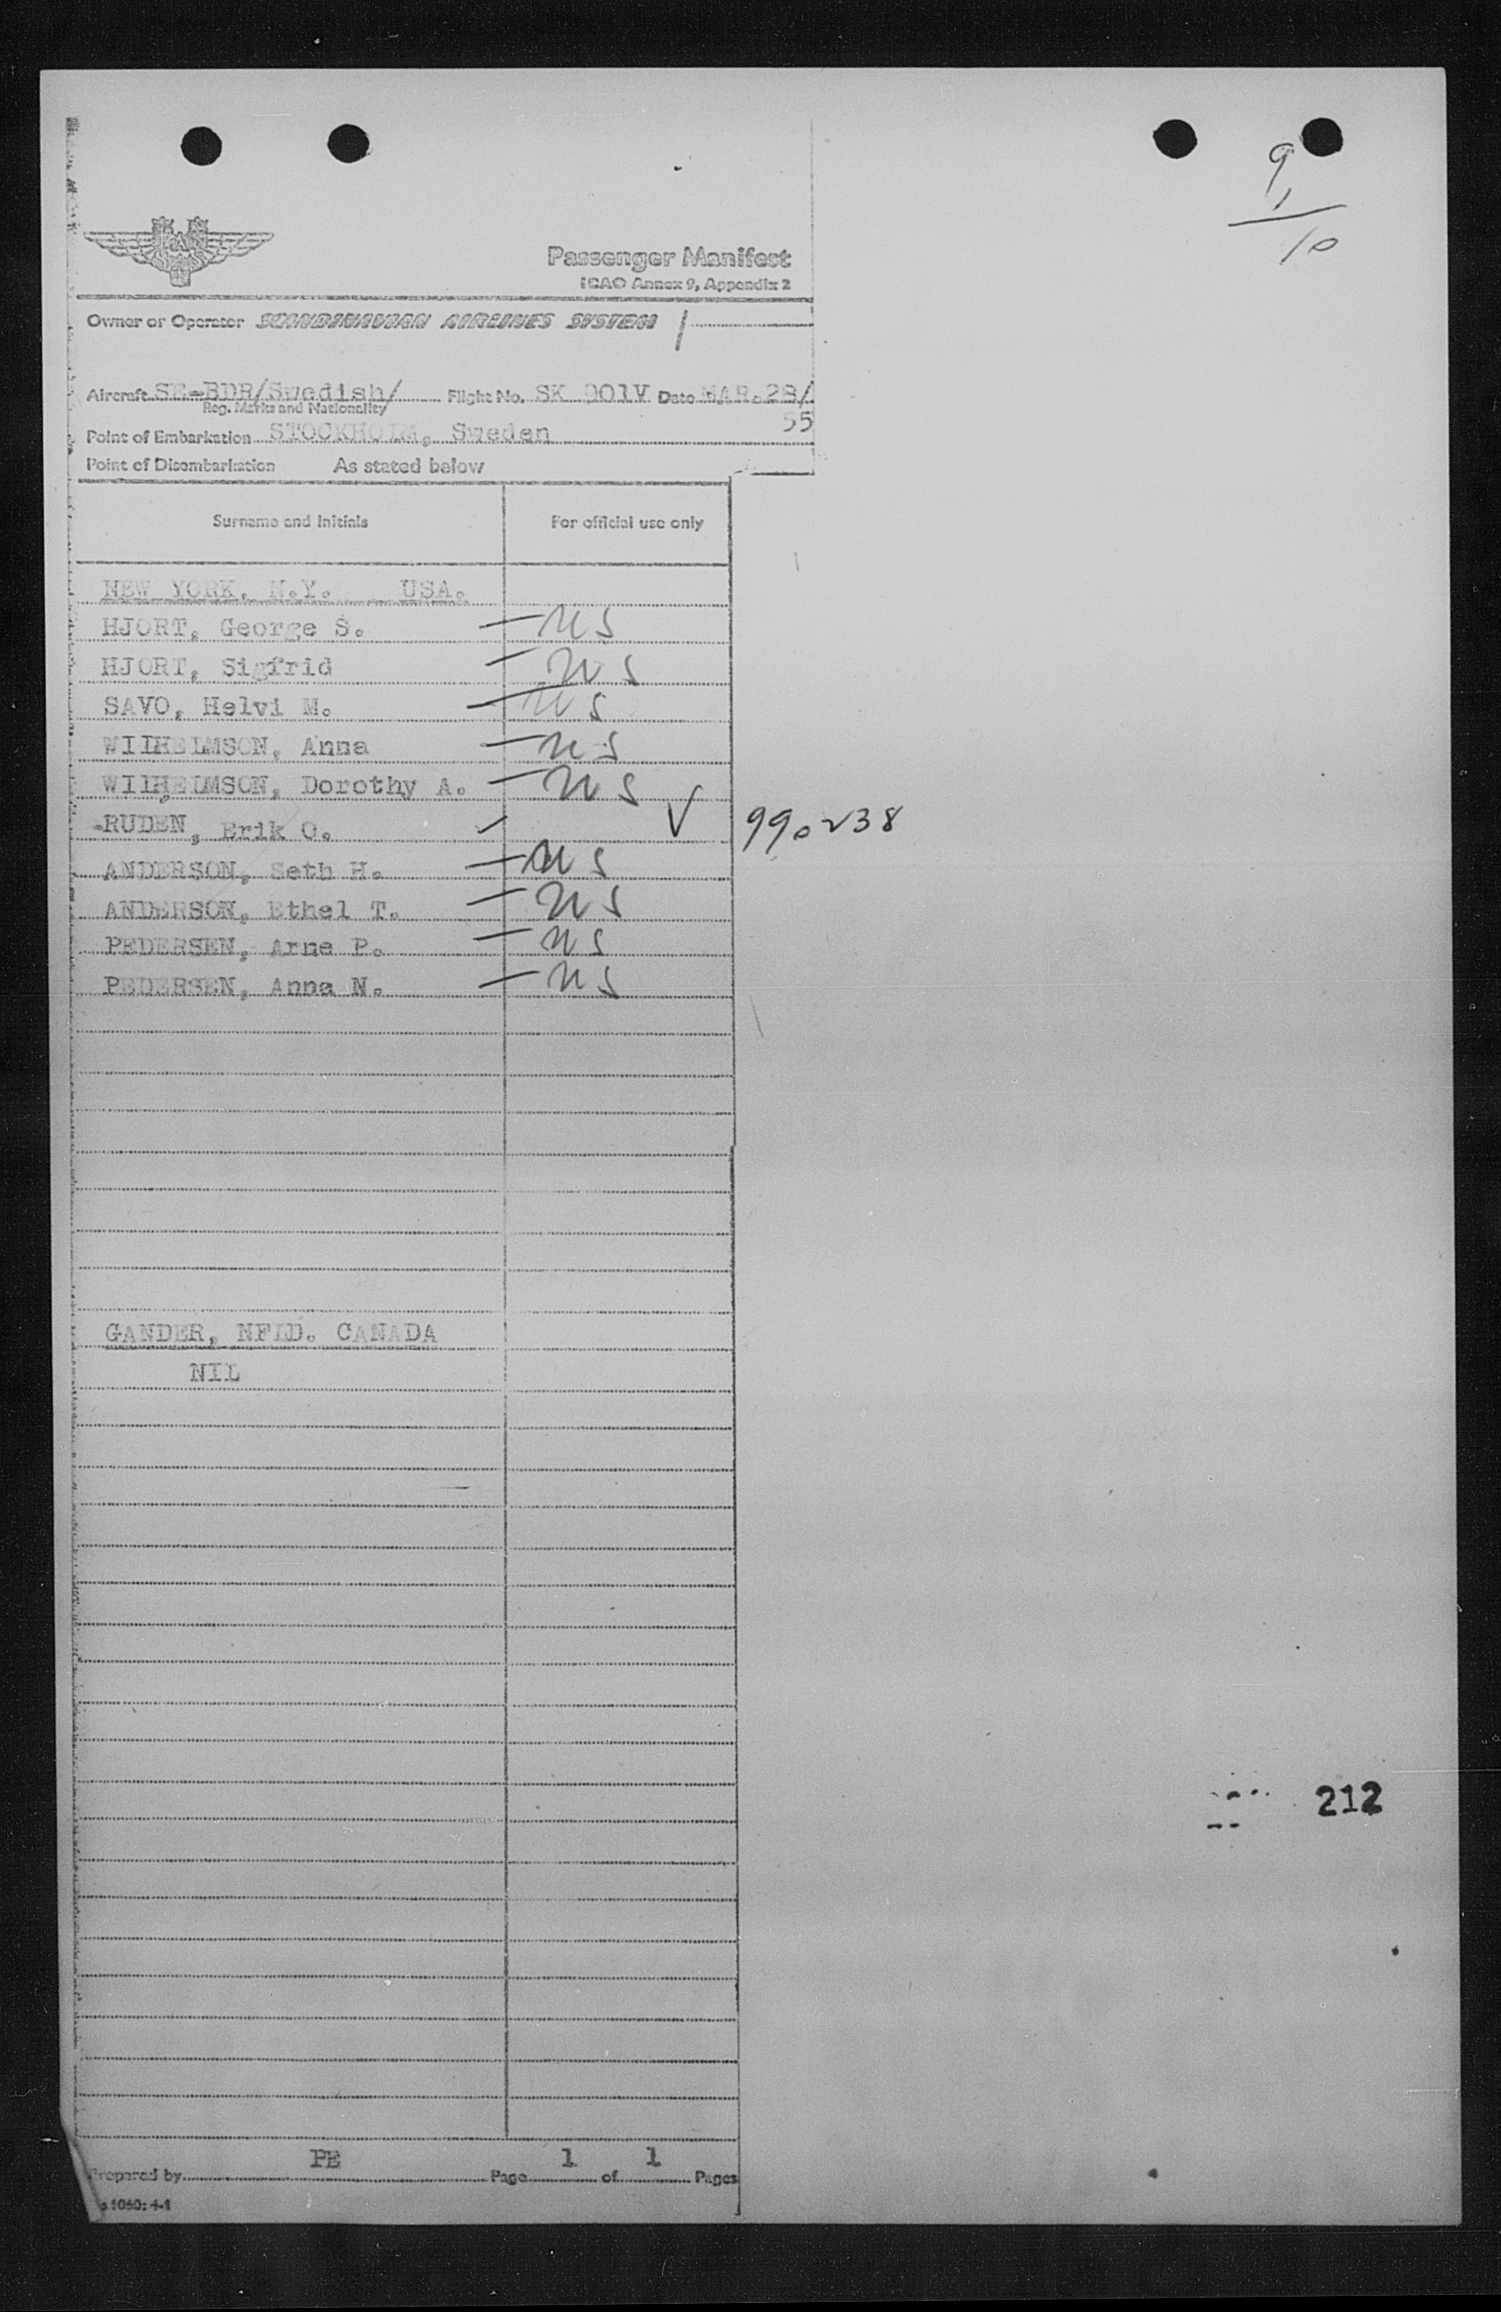 9
1
10
SAS
Passenger Manifest
ICAO Annex 9, Appendix 2
Owner or Operator SCANDINAVIAN AIRLINES SYSTEM
Aircraft SE-BDR/Swedish/ Flight No. SK 901V Date MAR.28/
Reg. Marks and Nationality
55
Point of Embarkation STOCKHOLM, Sweden
Point of Disembarkation As stated below
Surname and Initials For official use only
NEW YORK, N.Y. USA.
HJORT, George S. — US
HJORT, Sigfrid — US
SAVO, Helvi M. — US
WILHELMSON, Anna — US
WILHELMSON, Dorothy A. — US
RUDEN, Erik O. ✓ V 990238
ANDERSON, Seth H. — US
ANDERSON, Ethel T. — US
PEDERSEN, Arne P. — US
PEDERSEN, Anna N. — US
GANDER, NFLD. CANADA
NIL
212
PE
Prepared by Page 1 of 1 Pages
1060: 4-1